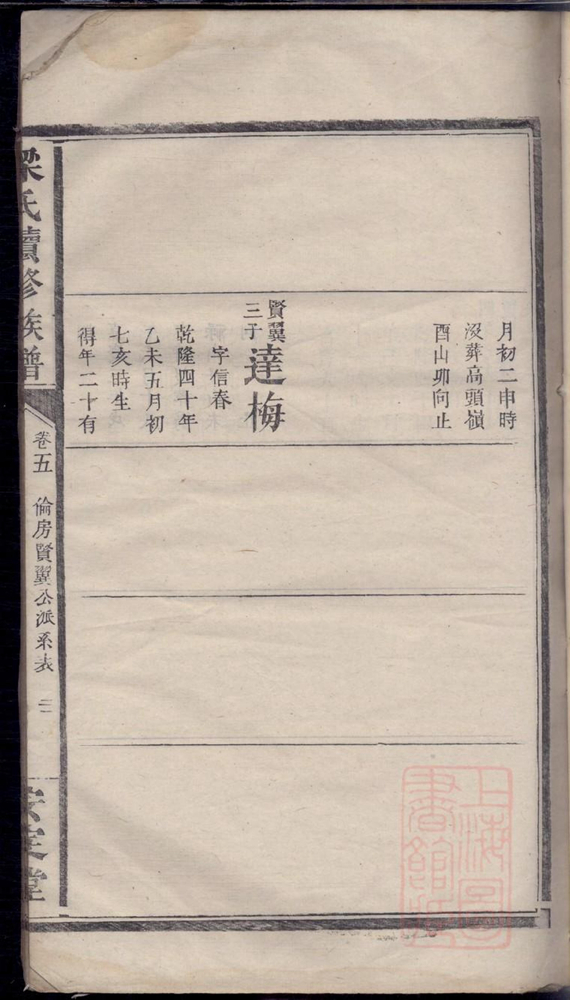 月初二申時
沒葬高頭嶺
酉山卯向止
賢翼
三子
達梅
字信春
乾隆四十年
乙未五月初
七亥時生
得年二十有
梁氏續修族譜
卷五
倫房賢翼公派系表
二
安定堂
上海圖
書館藏